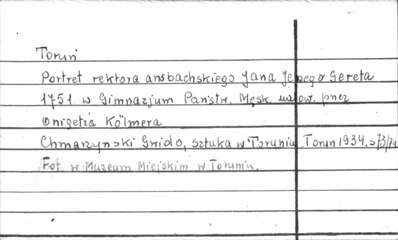 Toruń
Portret rektora ansbachskiego Jana Jerzego Gereta
1751 w Gimnazjum Państw. Męsk. malow. przez
Onigetia Kölmera
Chmarzyński Gwido, Sztuka w Toruniu, Toruń 1934, s.
Fot. w Muzeum Miejskim w Toruniu.